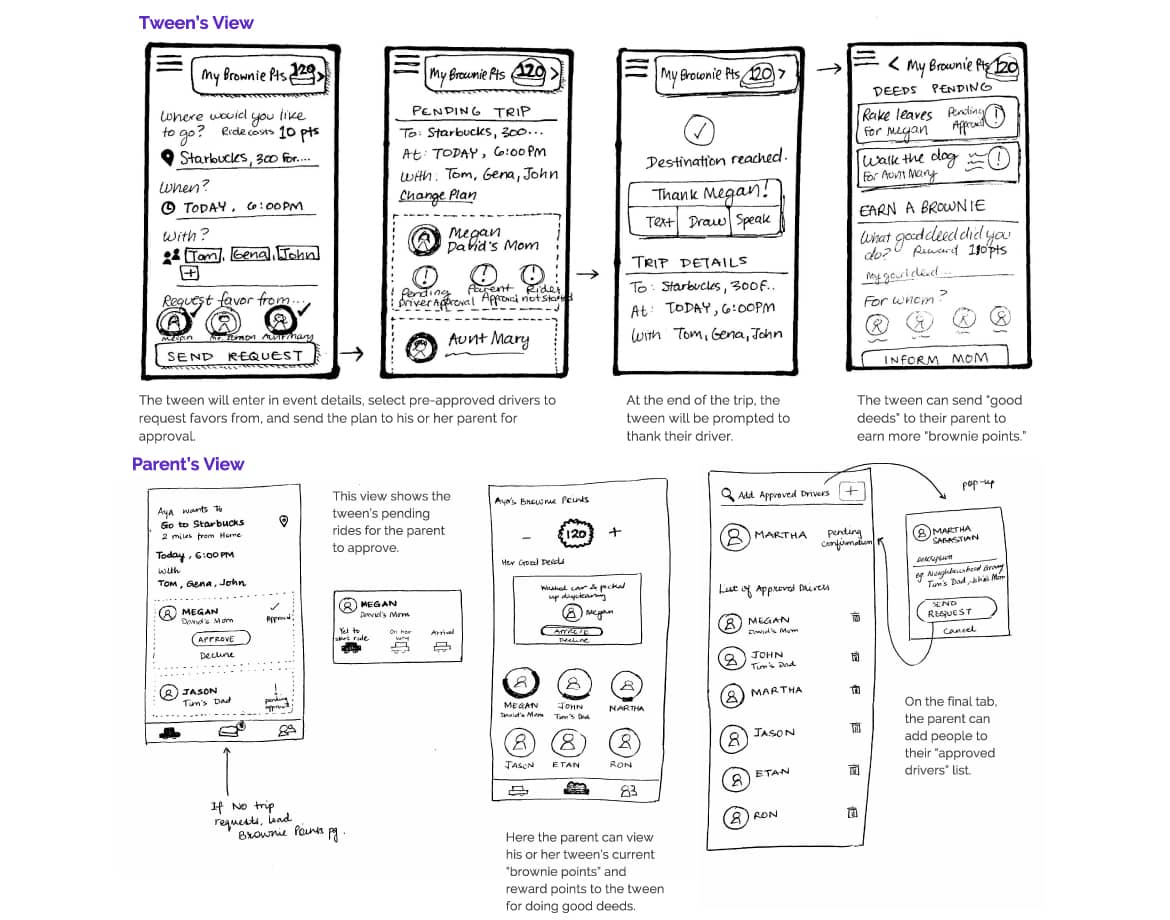 Tween's View
My Brownie Pts 120 >
Where would you like
to go? Ride costs 10 pts
Starbucks, 300 For....
When?
TODAY, 6:00PM
With?
Tom, Gena, John
+
Request favor from...
Megan Aunt Mary
SEND REQUEST
My Brownie Pts 120 >
PENDING TRIP
To: Starbucks, 300...
At: TODAY, 6:00PM
With: Tom, Gena, John
Change Plan
Megan
David's Mom
Pending Driver Approval
Parent Approval
Ride not started
Aunt Mary
My Brownie Pts 120 >
Destination reached.
Thank Megan!
Text Draw Speak
TRIP DETAILS
To: Starbucks, 300F..
At: TODAY, 6:00PM
With Tom, Gena, John
< My Brownie Pts 120
DEEDS PENDING
Rake leaves
For Megan
Pending Approval !
Walk the dog
For Aunt Mary
!
EARN A BROWNIE
What good deed did you
do? Reward 10pts
My good deed...
For whom?
INFORM MOM
The tween will enter in event details, select pre-approved drivers to
request favors from, and send the plan to his or her parent for
approval.
At the end of the trip, the
tween will be prompted to
thank their driver.
The tween can send "good
deeds" to their parent to
earn more "brownie points."
Parent's View
Aya wants To
Go to Starbucks
2 miles from Home
Today, 6:00PM
with
TOM, Gena, John
MEGAN
David's Mom
Approved
APPROVE
Decline
JASON
Tim's Dad
!
pending approval
If No trip
requests, land
Brownie Points pg.
This view shows the
tween's pending
rides for the parent
to approve.
MEGAN
David's Mom
Yet to start ride
On her way
Arrival
Aya's Brownie Points
- 120 +
Her Good Deeds
Washed car & picked
up drycleaning
Megan
APPROVE
Decline
MEGAN
David's Mom
JOHN
Tim's Dad
MARTHA
JASON
ETAN
RON
Here the parent can view
his or her tween's current
"brownie points" and
reward points to the tween
for doing good deeds.
Add Approved Drivers +
MARTHA
pending
confirmation
List of Approved Drivers
MEGAN
David's Mom
JOHN
Tim's Dad
MARTHA
JASON
ETAN
RON
pop-up
MARTHA
SABASTIAN
Description
eg. Neighbourhood Granny
Tim's Dad, John's Mom
SEND
REQUEST
Cancel
On the final tab,
the parent can
add people to
their "approved
drivers" list.